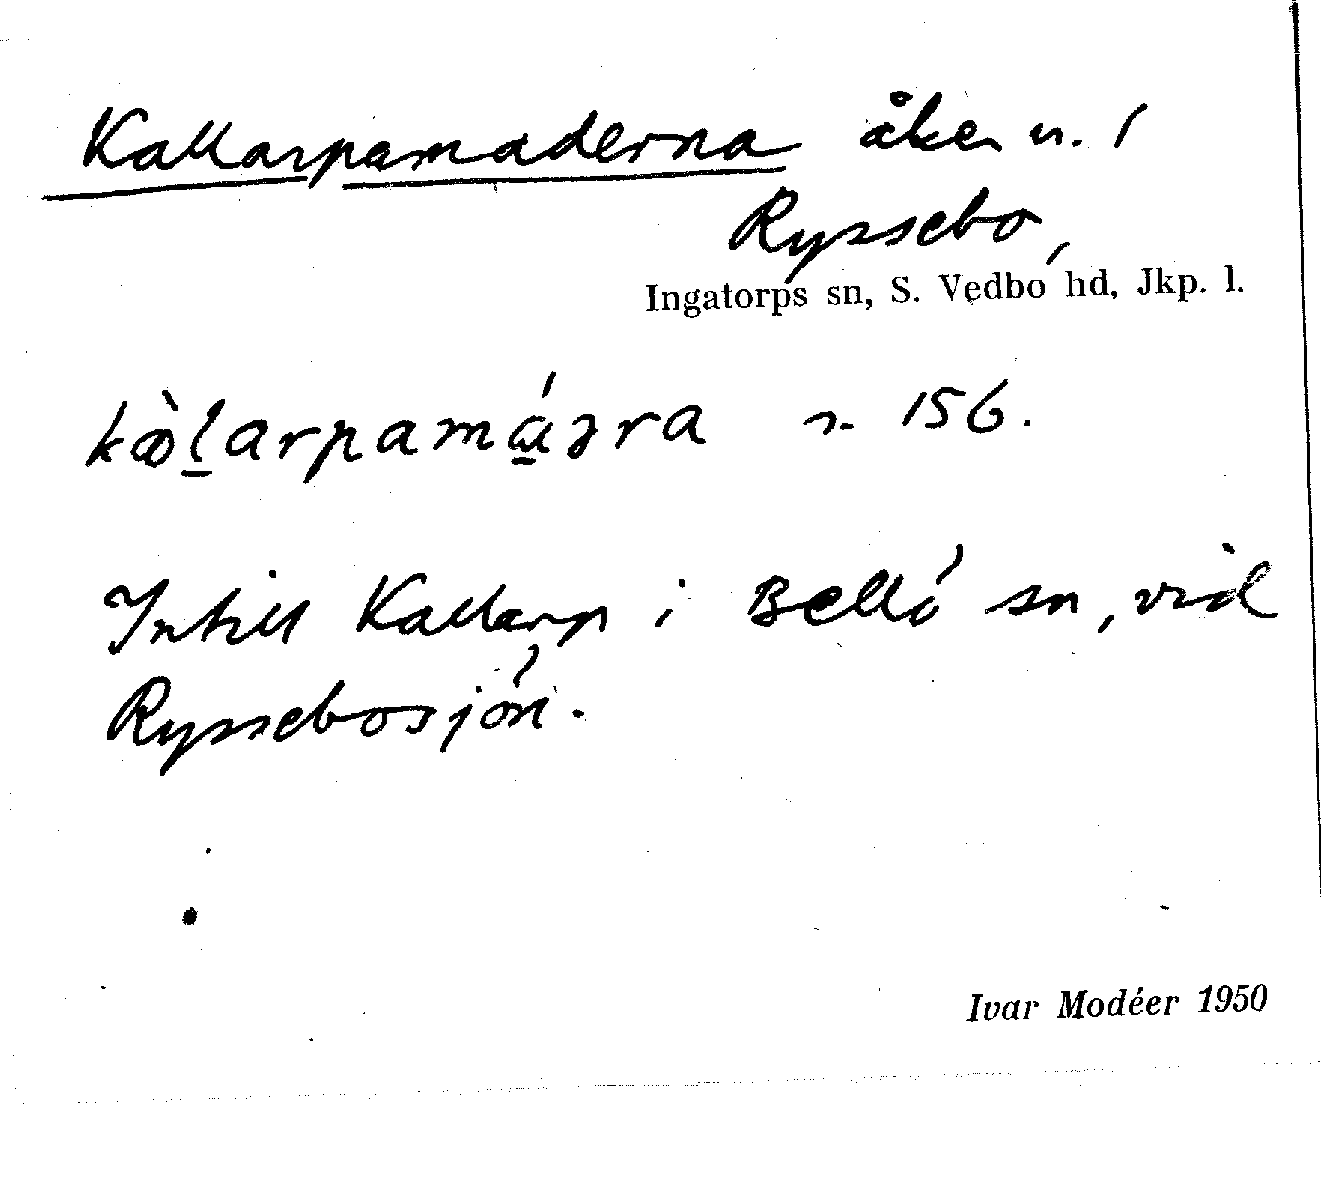 Kallarpamaderna åker n. 1
Ryssebo,
Ingatorps sn, S. Vedbo hd, Jkp. l.
n. 156.
Intill Kallarp i Bellö sn, vid
Ryssebosjön.
Ivar Modéer 1950